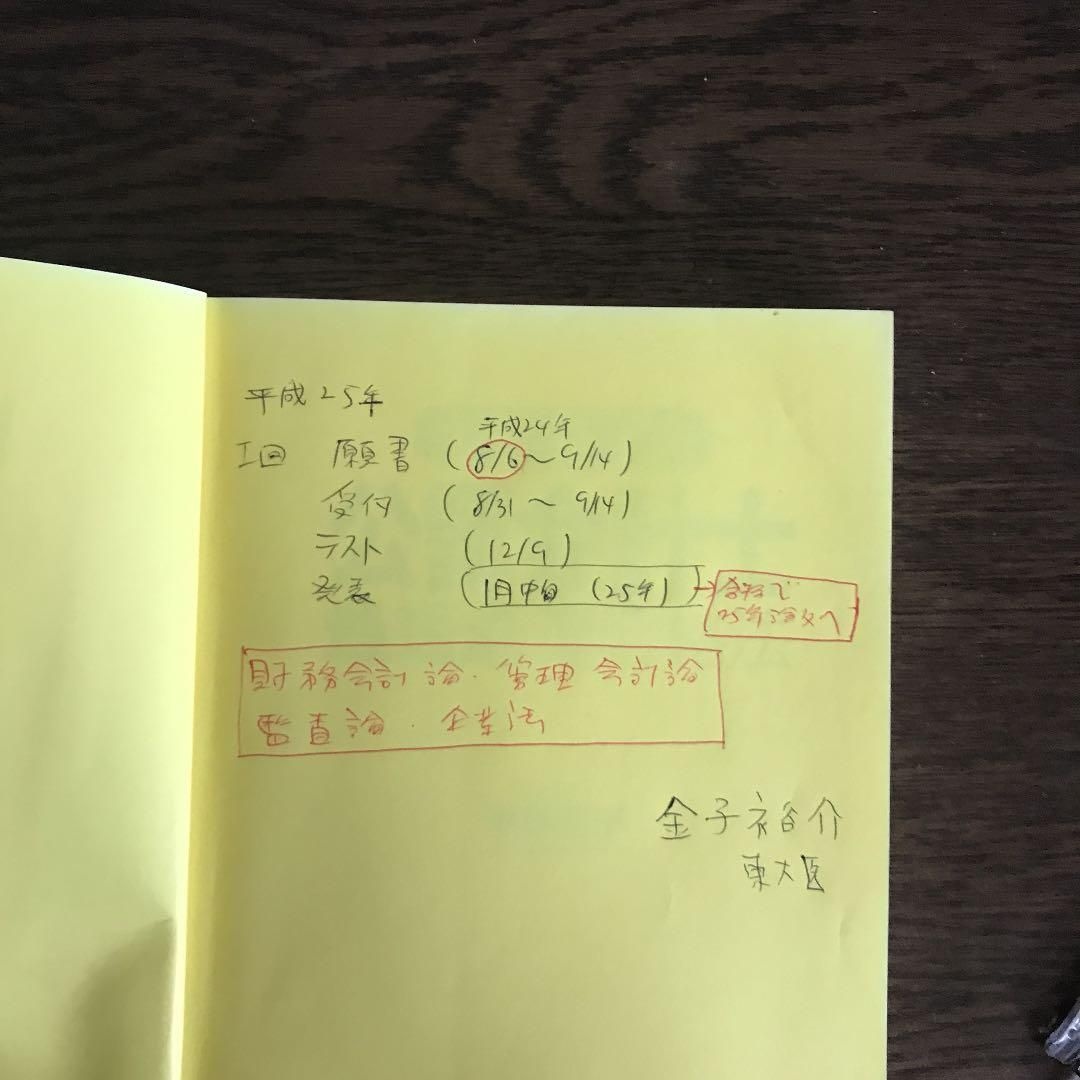 平成25年
平成24年
I回 願書 (8/6〜9/14)
受付 (8/31〜9/14)
テスト (12/9)
発表 (1月中旬 (25年)) →
合格で
25年論文へ
財務会計論・管理会計論
監査論・企業法
金子裕介
東大医